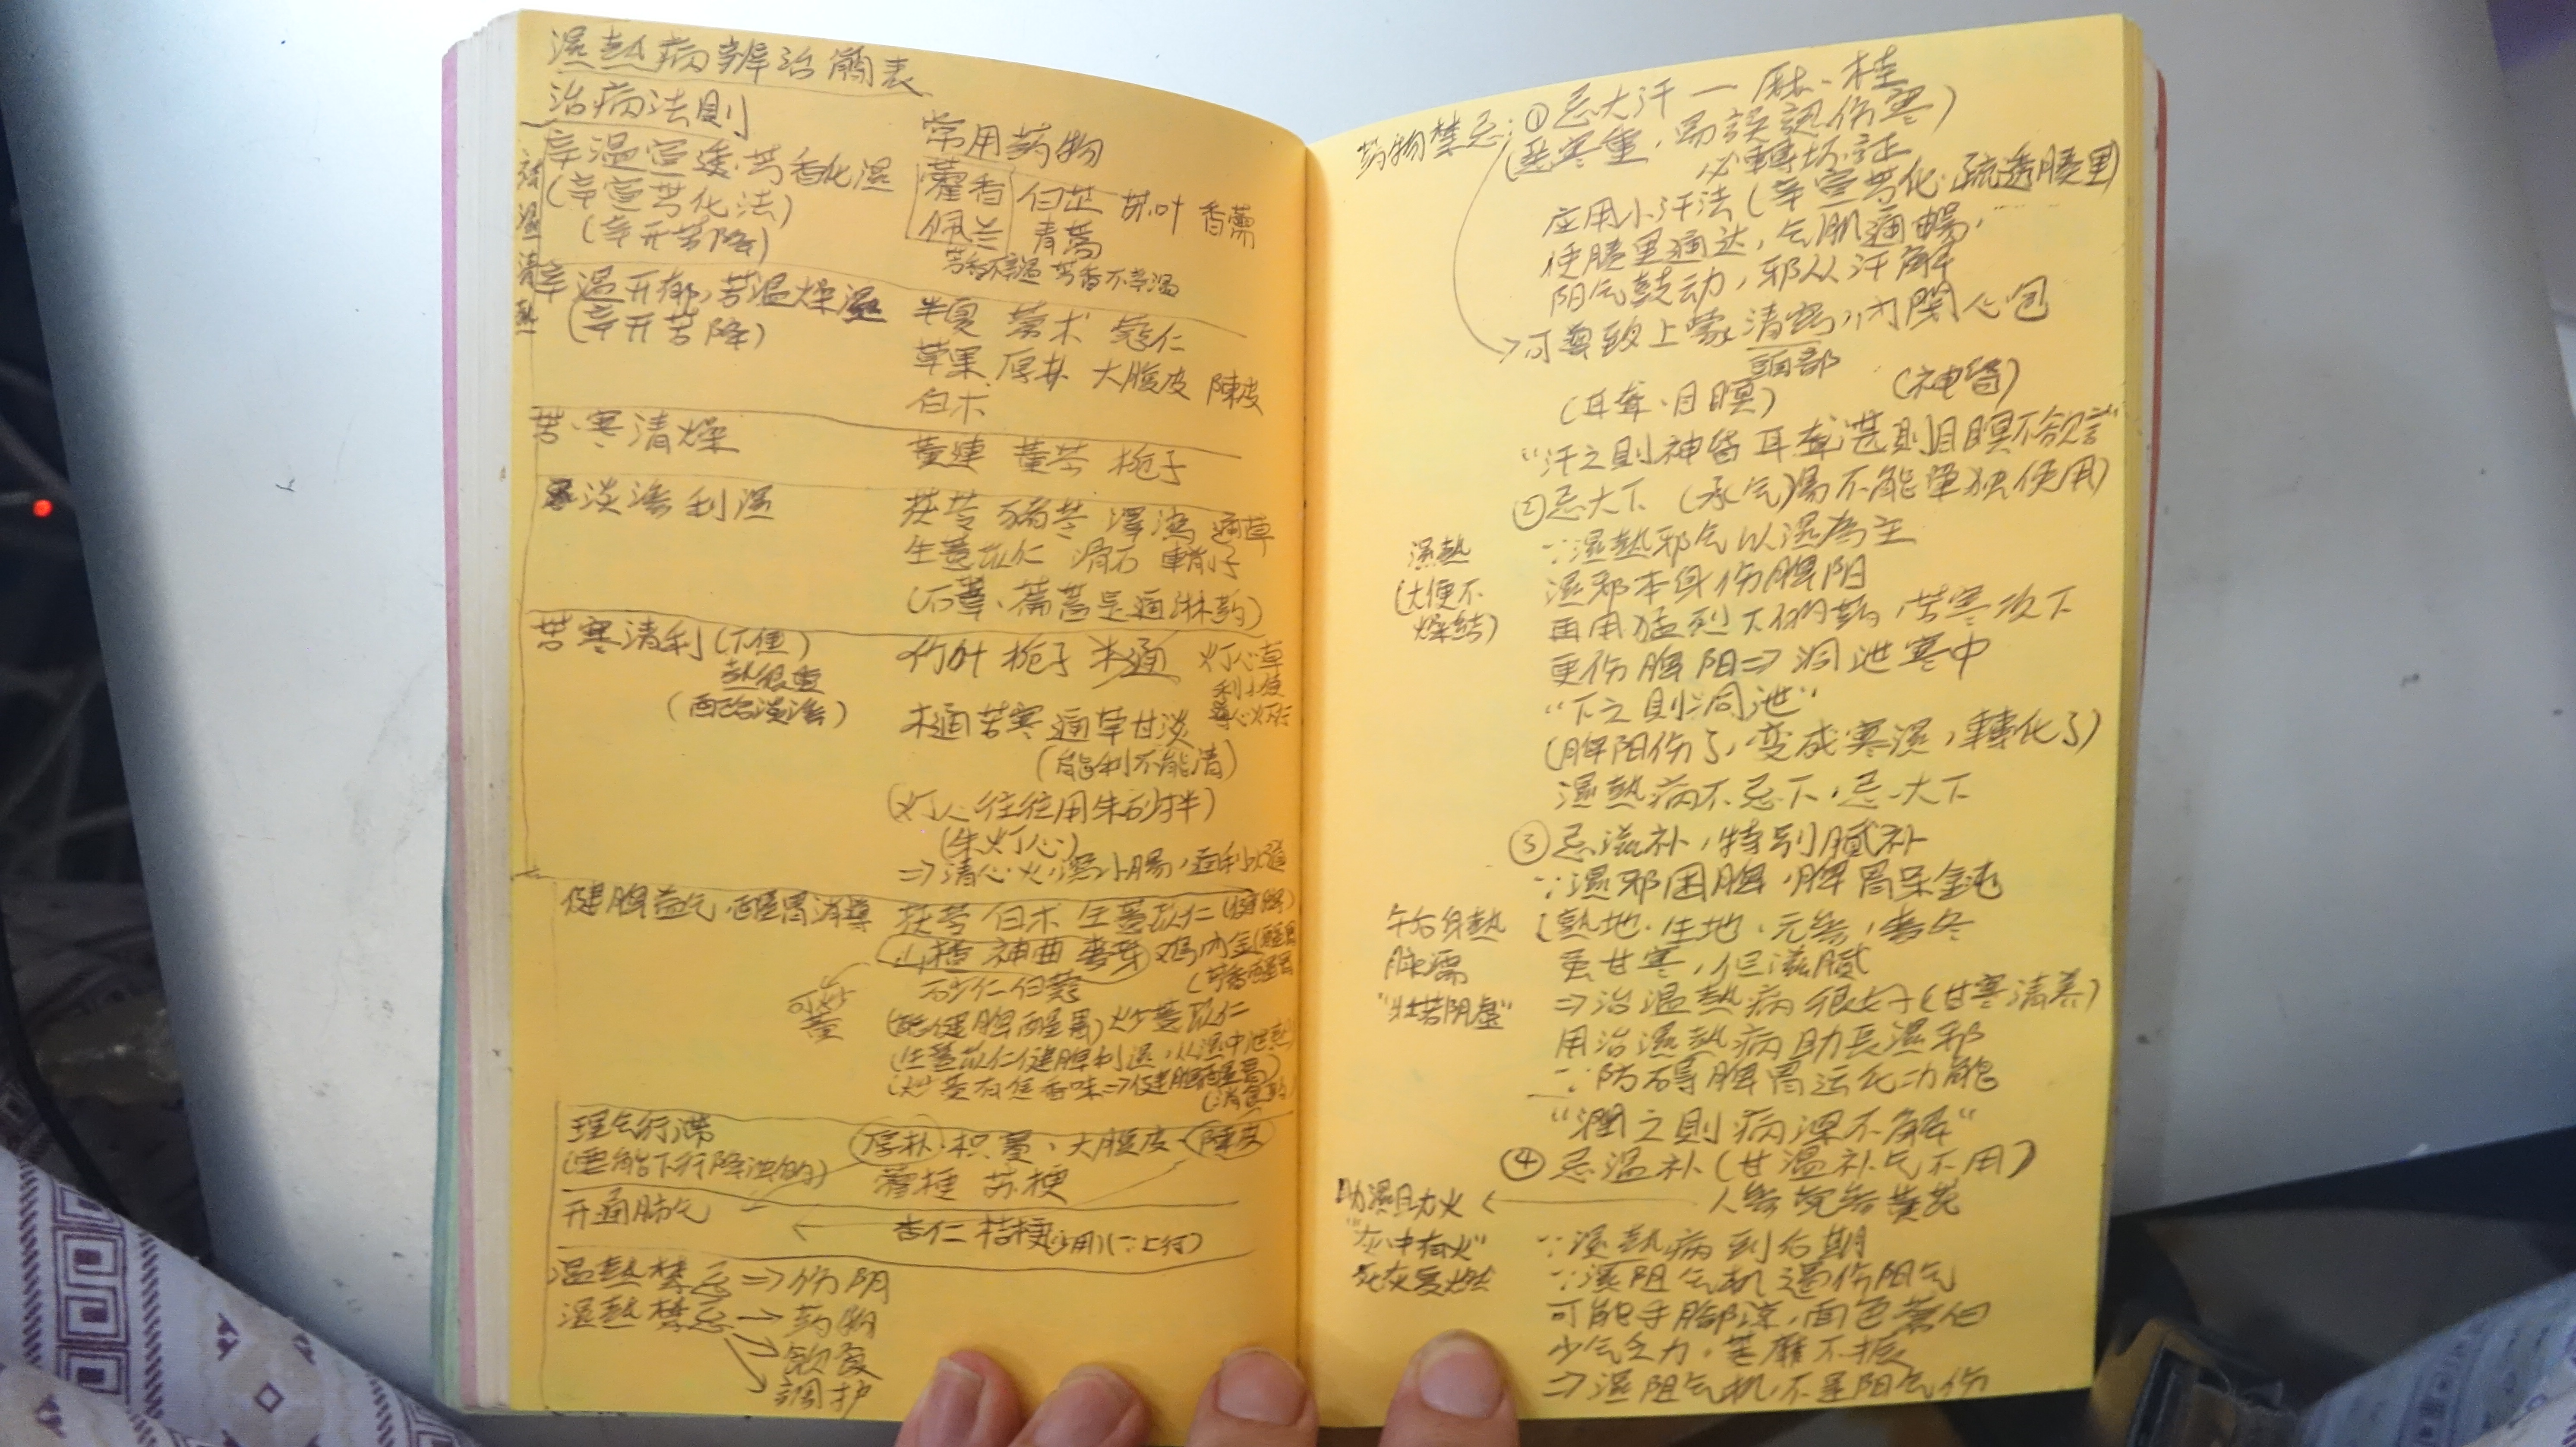 濕熱病辨治簡表
治病法則
常用药物
祛濕清熱
辛溫宣透.芳香化濕
(辛宣芳化法)
(辛开苦降)
藿香 白芷 苏叶 香薷
佩兰 青蒿
芳香不辛温
辛温开郁,苦温燥濕
(辛开苦降)
半夏 蒼术 蔻仁
草果 厚朴 大腹皮 陳皮
白术
苦寒清燥
黃連 黃芩 梔子
淡滲利濕
茯苓 豬苓 澤瀉 通草
生薏苡仁 滑石 車前子
(石葦、萹蓄是通淋药)
苦寒清利(不僅)
熱很重
(配合淡滲)
竹叶 梔子 木通 灯心草
利小便
導心火下行
木通苦寒 通草甘淡
(能利不能清)
(灯心往往用朱砂拌)
(朱灯心)
⇒清心火,瀉小腸,通利小便
健脾益气,醒胃消導
茯苓 白术 生薏苡仁(健脾)
山楂 神曲 麥芽 鸡内金(醒胃)
砂仁 白蔻 (芳香醒胃)
(能健脾醒胃)炒薏苡仁
(生薏苡仁健脾利濕,从濕中泄熱)
(炒薏有焦香味⇒健脾醒胃)
(消食)
理气行滯
(要能下行降浊的)
厚朴.枳實、大腹皮.陳皮
藿梗 苏梗
开通肺气
杏仁 桔梗(少用)(∵上行)
温熱禁忌⇒伤阴
濕熱禁忌→药物
→飲食
→調护
药物禁忌:①忌大汗—麻、桂
(恶寒重,易誤認伤寒)
必轉坏証
应用小汗法(辛宣芳化.疏透腠里)
使腠里通达,气机通暢,
阳气鼓动,邪从汗解
→可導致上蒙清窍,内閉心包
頭部
(耳聋.目瞑) (神昏)
"汗之則神昏耳聋甚則目瞑不欲言"
②忌大下 (承气湯不能單独使用)
濕熱
(大便不
燥結)
∵濕熱邪气以濕為主
濕邪本身伤脾阳
再用猛烈下的药,苦寒攻下
更伤脾阳⇒洞泄寒中
"下之則洞泄"
(脾阳伤了,变成寒濕,轉化了)
濕熱病不忌下,忌大下
③忌滋补,特別膩补
∵濕邪困脾,脾胃呆鈍
午后身熱
脉濡
"狀若阴虛"
(熟地.生地.元参,麦冬
虽甘寒,但滋膩
⇒治温熱病很好(甘寒清养)
用治濕熱病助長濕邪
∵防碍脾胃运化功能
"潤之則病深不解"
④忌温补(甘温补气不用)
助濕且助火 ← 人参 党参 黄芪
"炉中有火"
死灰复燃
∵濕熱病到后期
∵濕阻气机遏伤阳气
可能手腳凉,面色蒼白
少气乏力,萎靡不振
⇒濕阻气机,不是阳气伤